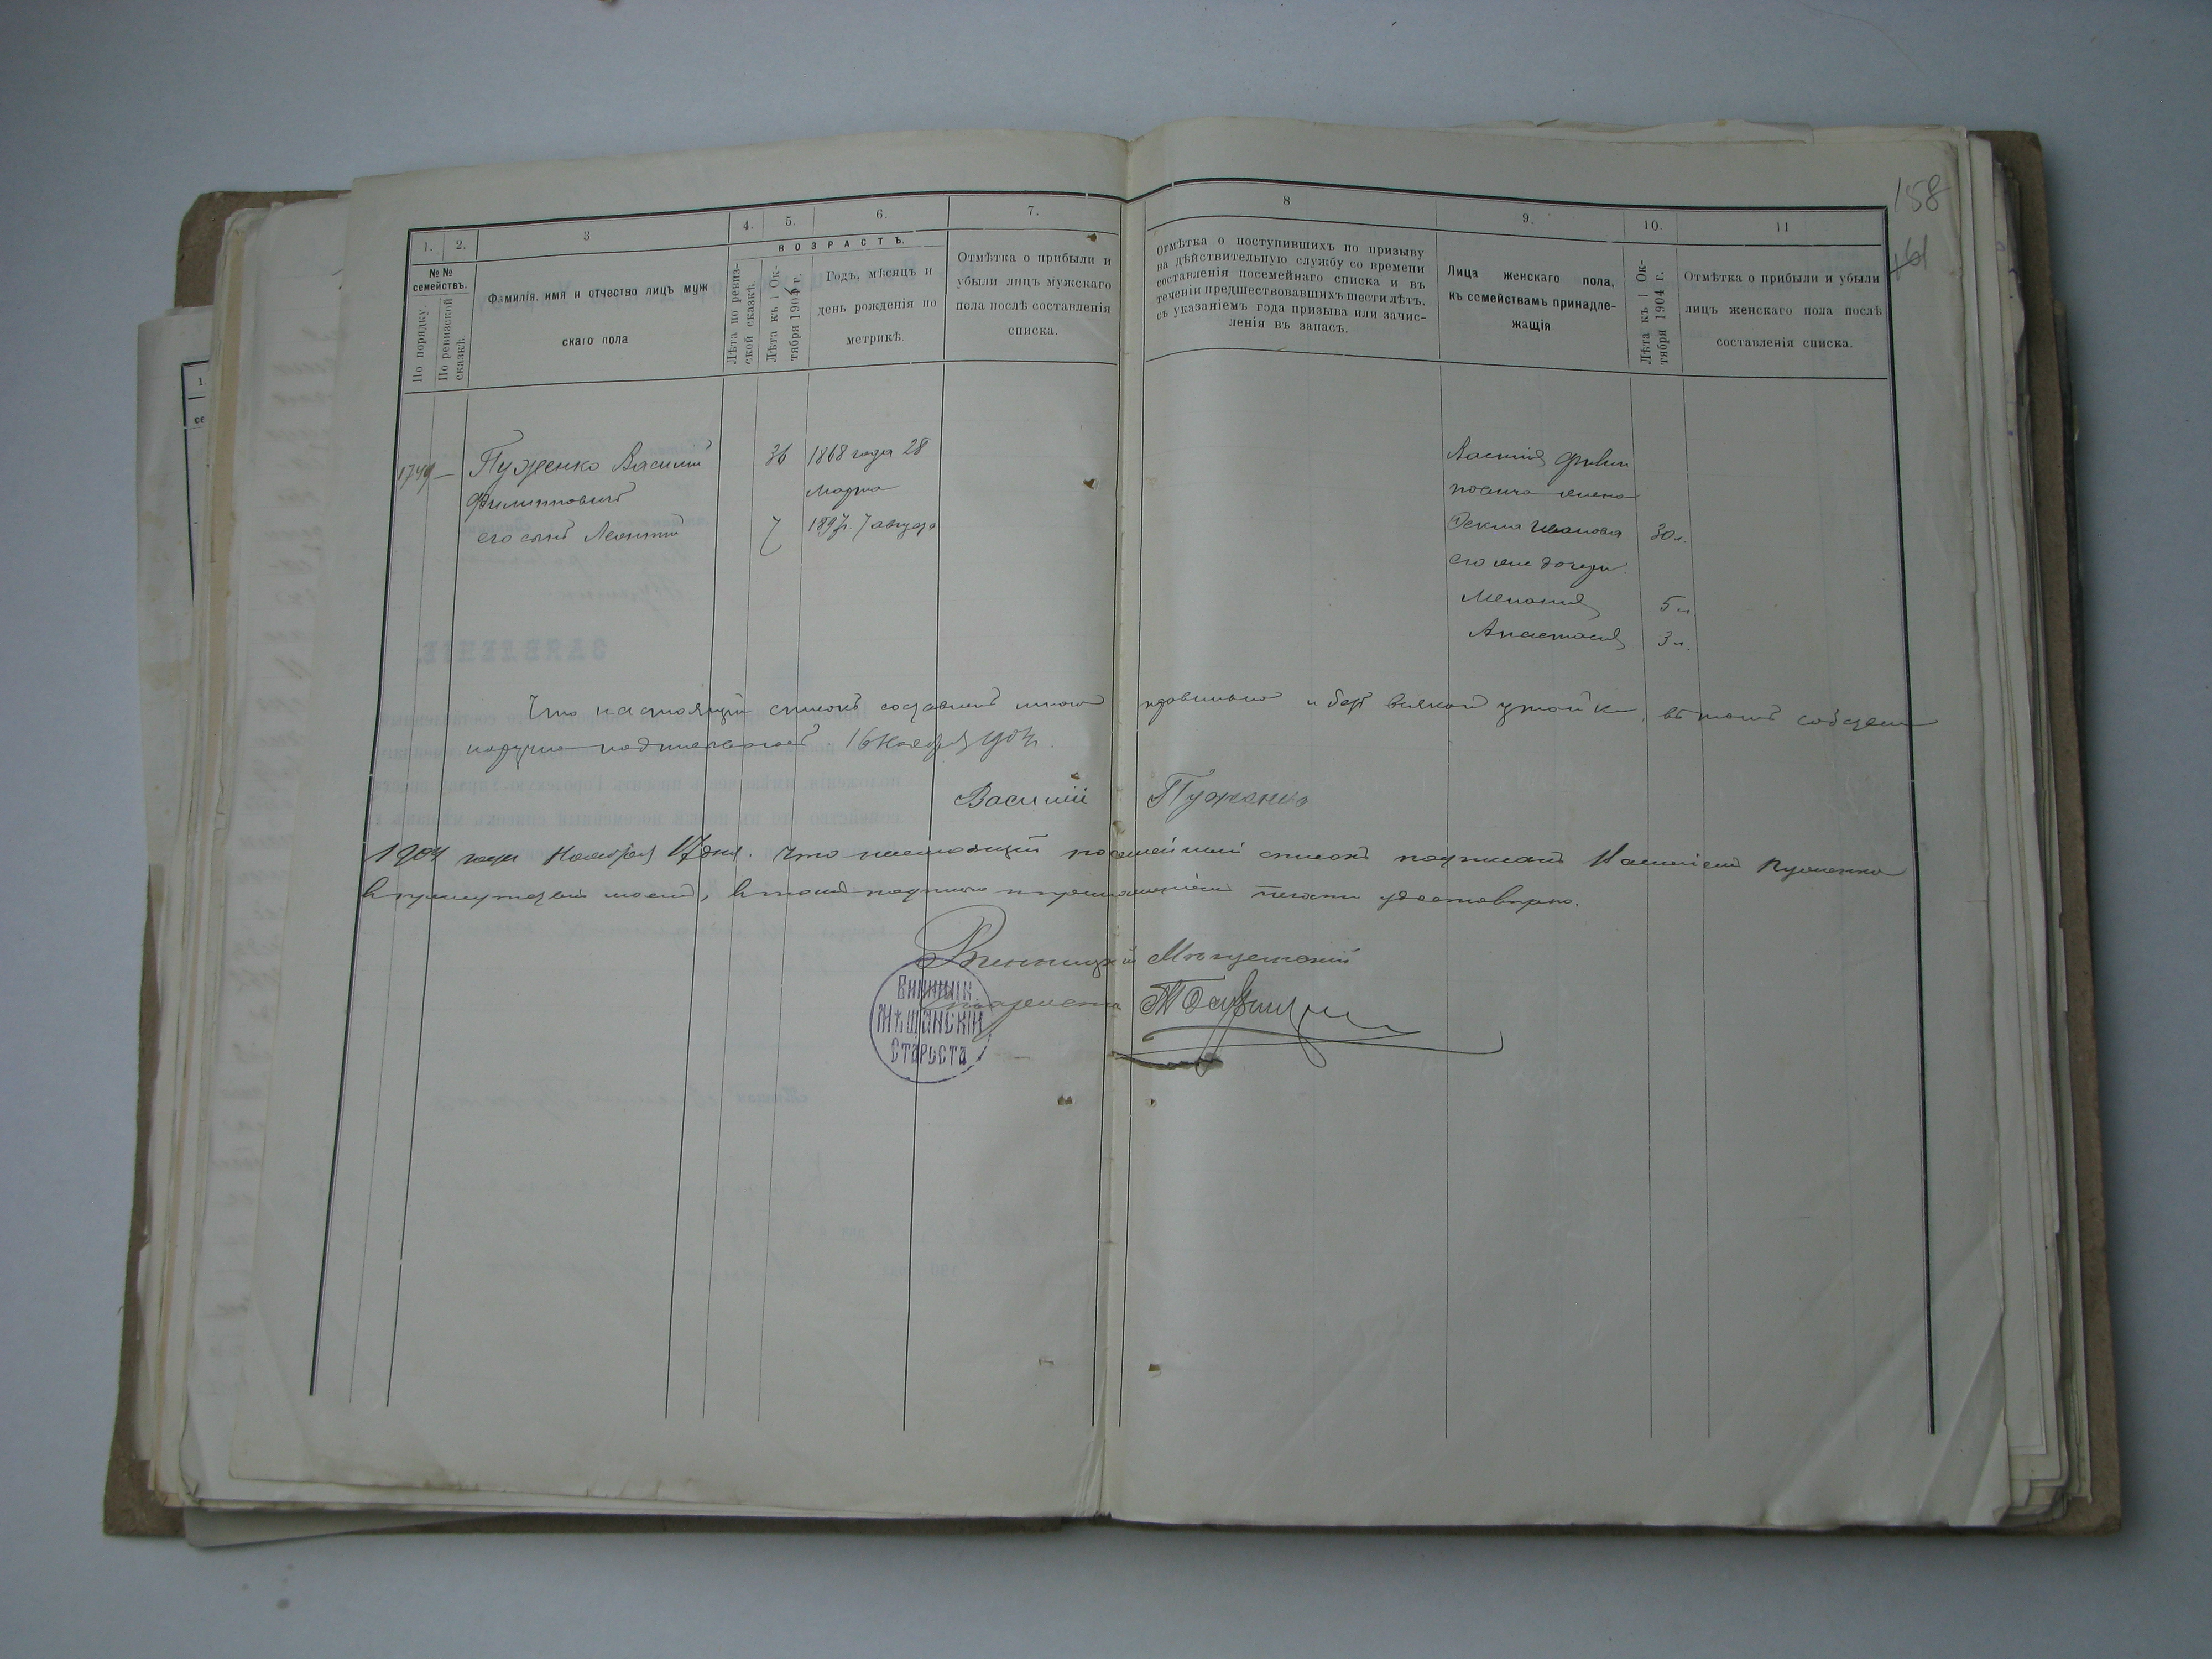 158
161
1. 2. 3 4. 5. 6. 7. 8 9. 10. 11
№ № семействъ.
По порядку.
По ревизской сказкѣ.
Фамилія, имя и отчество лицъ муж
скаго пола
ВОЗРАСТЪ.
Лѣта по ревиз-
ской сказкѣ.
Лѣта къ 1 Ок-
тября 1904 г.
Годъ, мѣсяцъ и
день рожденія по
метрикѣ.
Отмѣтка о прибыли и
убыли лицъ мужскаго
пола послѣ составленія
списка.
Отмѣтка о поступившихъ по призыву
на дѣйствительную службу со времени
составленія посемейнаго списка и въ
теченіи предшествовавшихъ шести лѣтъ,
съ указаніемъ года призыва или зачис-
ленія въ запасъ.
Лица женскаго пола,
къ семействамъ принадле-
жащія
Лѣта къ 1 Ок-
тября 1904 г.
Отмѣтка о прибыли и убыли
лицъ женскаго пола послѣ
составленія списка.
Пуженко Василій 36 1868 года 28
Филипповичъ Марта
его сынъ Леонтій 7 1897г. 7 августа
Василія Филип
повича жена
Фекла Иванова 30 л.
его же дочери
Меланія 5 л.
Анастасія 3 л.
Что настоящій списокъ составленъ мною правильно и безъ всякой утайки, въ томъ собствен
норучно подписываюсь. 16 Ноября 1904г.
Василій Пуженко
1904 года Ноября 17 дня. Что настоящій посемейный списокъ подписанъ Василіемъ Пуженко
въ присутствіи моемъ, въ томъ подписью и приложеніемъ печати удостовѣряю.
Винницкій Мѣщанскій
Староста
Винницк.
Мѣщанскій
Староста
ЗАЯВЛЕНІЕ